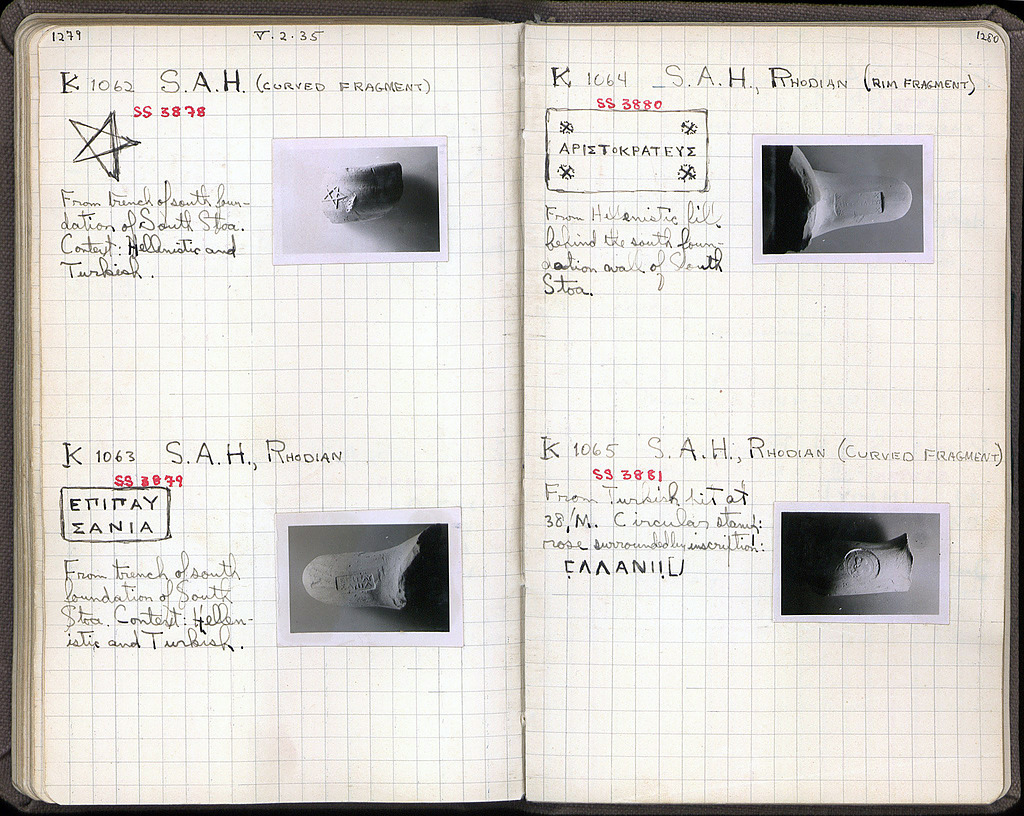 1279
V.2.35
K 1062 S.A.H. (CURVED FRAGMENT)
SS 3878
From trench of south foun-
dation of South Stoa.
Context: Hellenistic and
Turkish.
K 1063 S.A.H., RHODIAN
SS 3879
ΕΠΙΠΑΥ
ΣΑΝΙΑ
From trench of south
foundation of South
Stoa. Context: Hellen-
istic and Turkish.
1280
K 1064 S.A.H., RHODIAN (RIM FRAGMENT)
SS 3880
ΑΡΙΣΤΟΚΡΑΤΕΥΣ
From Hellenistic fill
behind the south foun-
dation wall of South
Stoa.
K 1065 S.A.H., RHODIAN (CURVED FRAGMENT)
SS 3881
From Turkish pit at
38/M. Circular stamp:
rose surrounded by inscription: